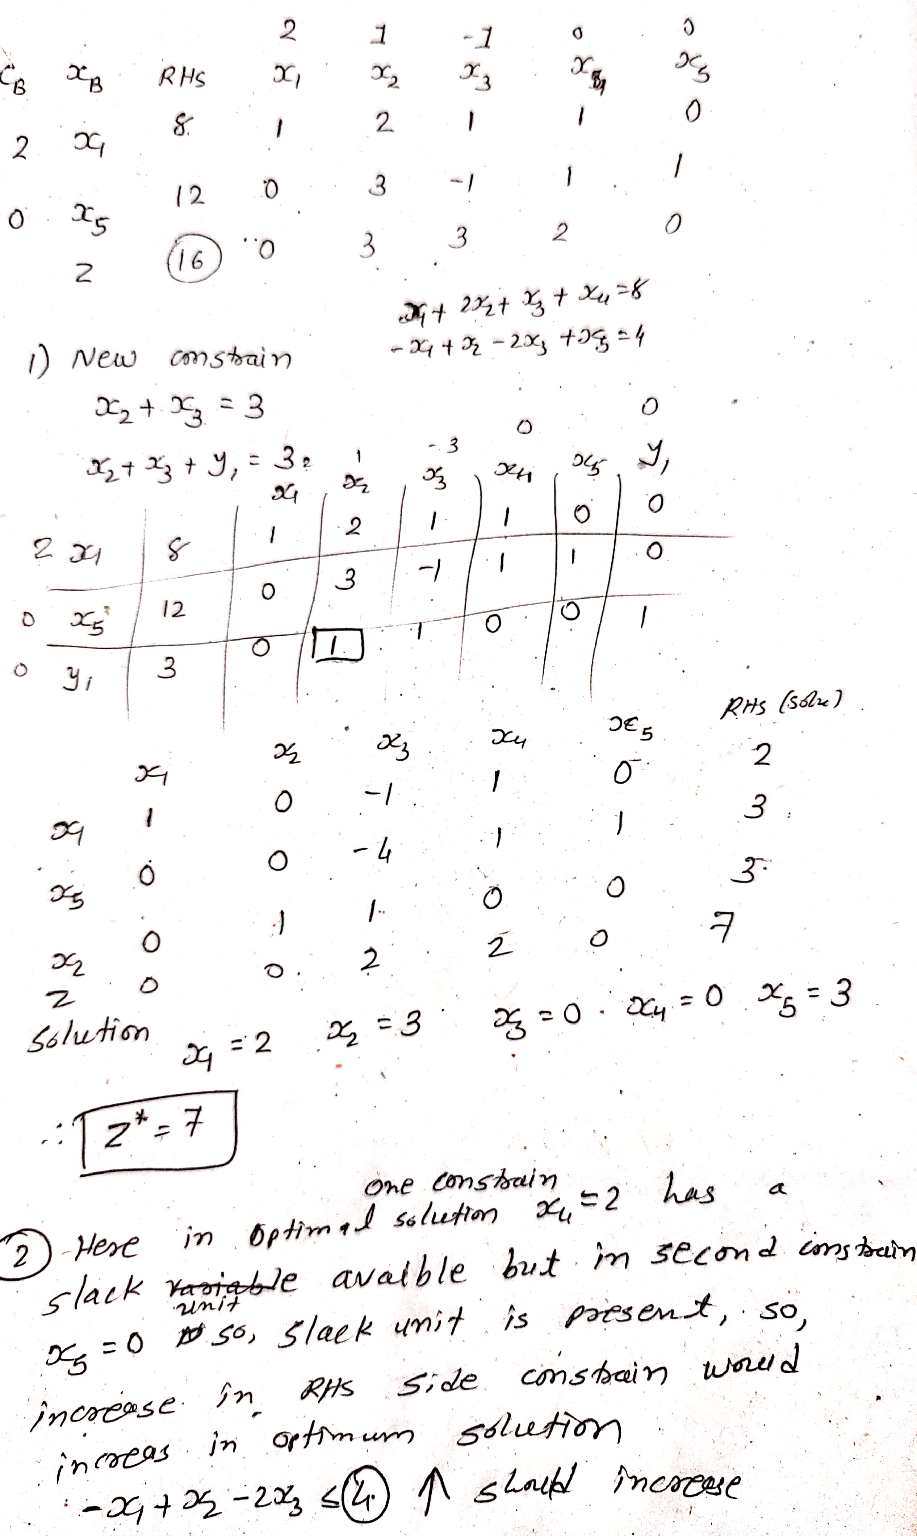 2 1 -1 0 0
CB xB RHS x1 x2 x3 x4 x5
2 x1 8 1 2 1 1 0
0 x5 12 0 3 -1 1 1
Z 16 0 3 3 2 0
x1 + 2x2 + x3 + x4 = 8
-x1 + x2 - 2x3 + x5 = 4
1) New constrain
x2 + x3 = 3
x2 + x3 + y1 = 3
2 1 -3 0 0
x1 x2 x3 x4 x5 y1
2 x1 8 1 2 1 1 0 0
0 x5 12 0 3 -1 1 1 0
0 y1 3 0 1 1 0 0 1
x1 x2 x3 x4 x5 RHS (solu)
x1 1 0 -1 1 0 2
x5 0 0 -4 1 1 3
x2 0 1 1 0 0 3
Z 0 0 2 2 0 7
Solution x1 = 2 x2 = 3 x3 = 0 x4 = 0 x5 = 3
∴ Z* = 7
one constrain
2 Here in optimal solution x4 = 2 has a
slack variable avaible but in second constrain
unit
x5 = 0 so, slack unit is present, so,
increase in RHS side constrain would
increas in optimum solution
: -x1 + x2 - 2x3 ≤ 4 ↑ should increase